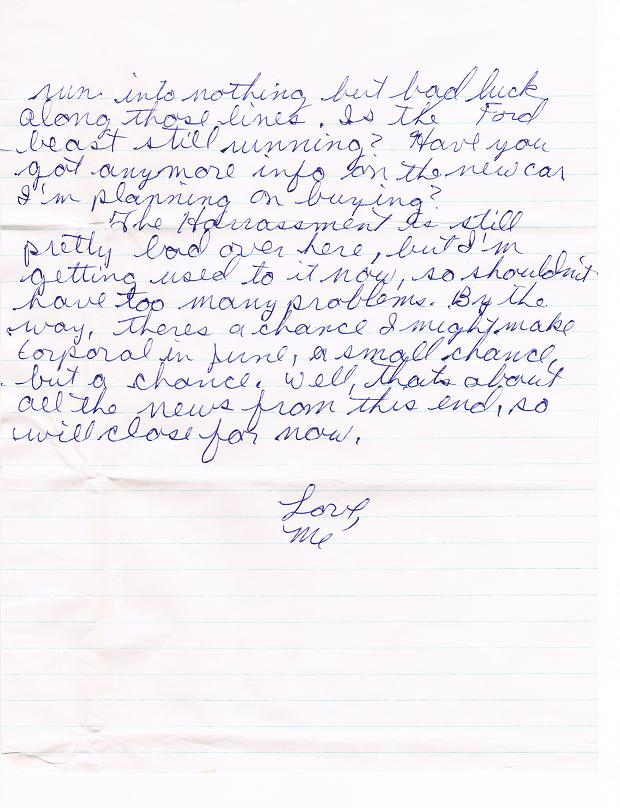 run into nothing but bad luck
along those lines. Is the Ford
beast still running? Have you
got anymore info on the new car
I'm planning on buying?
The Harrassment is still
pretty bad over here, but I'm
getting used to it now, so shouldn't
have too many problems. By the
way, theres a chance I might make
Corporal in June, a small chance,
but a chance. Well, thats about
all the news from this end, so
will close for now.
Love,
Me